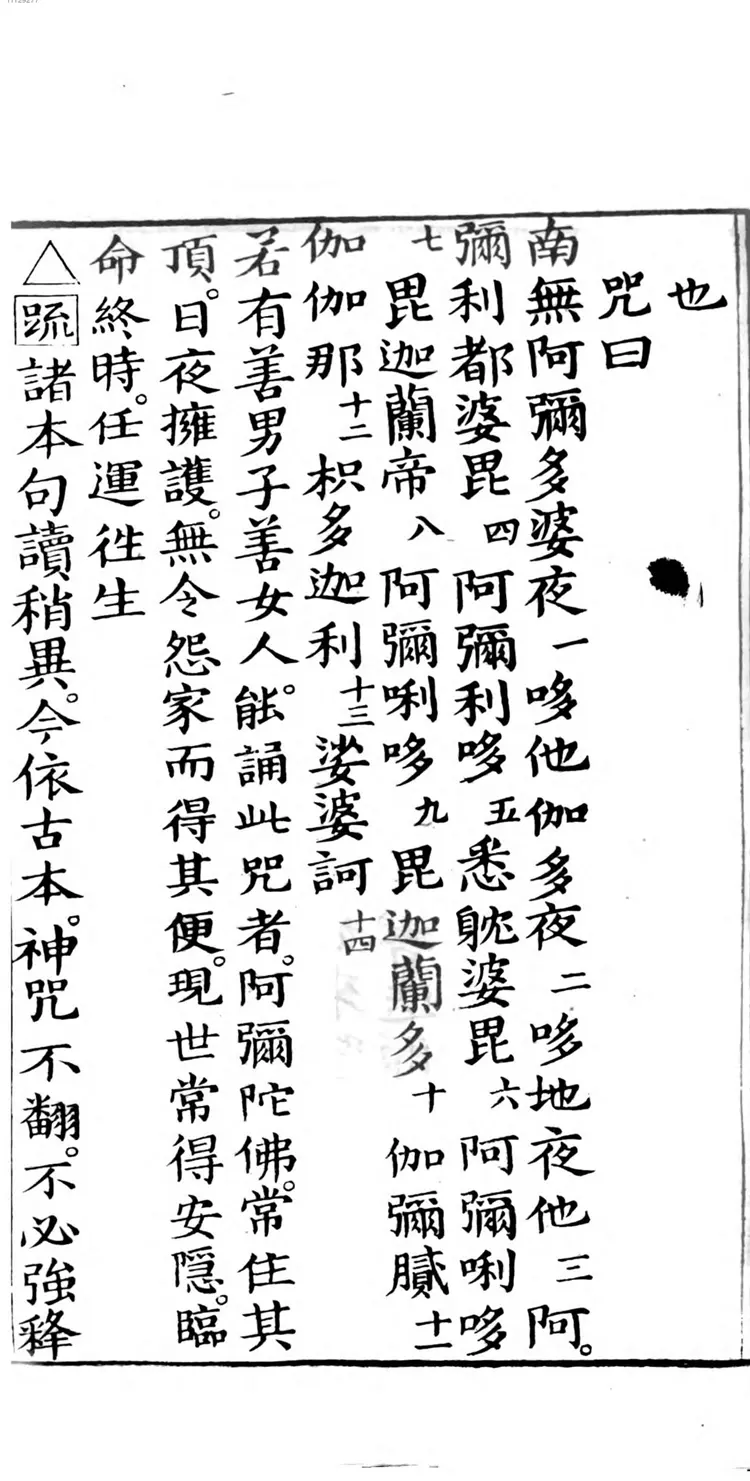 也
咒曰
南無阿彌多婆夜一哆他伽多夜二哆地夜他三阿。
彌利都婆毘四阿彌利哆五悉躭婆毘六阿彌唎哆
七毘迦蘭帝八阿彌唎哆九毘迦蘭多十伽彌膩十一
伽伽那十二枳多迦利十三娑婆訶十四
若有善男子善女人。能誦此咒者。阿彌陀佛。常住其
頂。日夜擁護。無令怨家而得其便。現世常得安隱。臨
命終時。任運徃生
△疏諸本句讀稍異。今依古本。神咒不翻。不必強釋